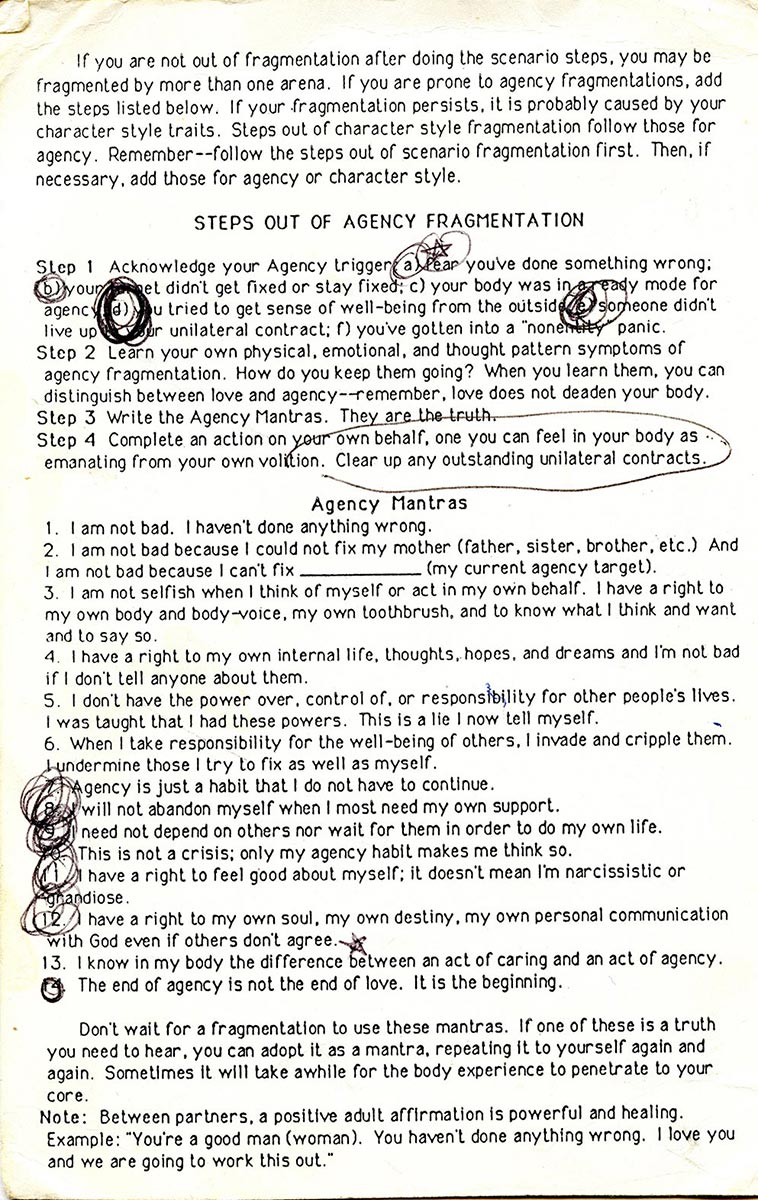 If you are not out of fragmentation after doing the scenario steps, you may be
fragmented by more than one arena. If you are prone to agency fragmentations, add
the steps listed below. If your fragmentation persists, it is probably caused by your
character style traits. Steps out of character style fragmentation follow those for
agency. Remember--follow the steps out of scenario fragmentation first. Then, if
necessary, add those for agency or character style.
STEPS OUT OF AGENCY FRAGMENTATION
Step 1 Acknowledge your Agency trigger: a) fear you've done something wrong;
b) your target didn't get fixed or stay fixed; c) your body was in a ready mode for
agency; d) you tried to get sense of well-being from the outside; e) someone didn't
live up to your unilateral contract; f) you've gotten into a "nonentity" panic.
Step 2 Learn your own physical, emotional, and thought pattern symptoms of
agency fragmentation. How do you keep them going? When you learn them, you can
distinguish between love and agency--remember, love does not deaden your body.
Step 3 Write the Agency Mantras. They are the truth.
Step 4 Complete an action on your own behalf, one you can feel in your body as
emanating from your own volition. Clear up any outstanding unilateral contracts.
Agency Mantras
1. I am not bad. I haven't done anything wrong.
2. I am not bad because I could not fix my mother (father, sister, brother, etc.) And
I am not bad because I can't fix ____________ (my current agency target).
3. I am not selfish when I think of myself or act in my own behalf. I have a right to
my own body and body-voice, my own toothbrush, and to know what I think and want
and to say so.
4. I have a right to my own internal life, thoughts, hopes, and dreams and I'm not bad
if I don't tell anyone about them.
5. I don't have the power over, control of, or responsibility for other people's lives.
I was taught that I had these powers. This is a lie I now tell myself.
6. When I take responsibility for the well-being of others, I invade and cripple them.
I undermine those I try to fix as well as myself.
7. Agency is just a habit that I do not have to continue.
8. I will not abandon myself when I most need my own support.
9. I need not depend on others nor wait for them in order to do my own life.
10. This is not a crisis; only my agency habit makes me think so.
11. I have a right to feel good about myself; it doesn't mean I'm narcissistic or
grandiose.
12. I have a right to my own soul, my own destiny, my own personal communication
with God even if others don't agree.
13. I know in my body the difference between an act of caring and an act of agency.
14. The end of agency is not the end of love. It is the beginning.
Don't wait for a fragmentation to use these mantras. If one of these is a truth
you need to hear, you can adopt it as a mantra, repeating it to yourself again and
again. Sometimes it will take awhile for the body experience to penetrate to your
core.
Note: Between partners, a positive adult affirmation is powerful and healing.
Example: "You're a good man (woman). You haven't done anything wrong. I love you
and we are going to work this out."